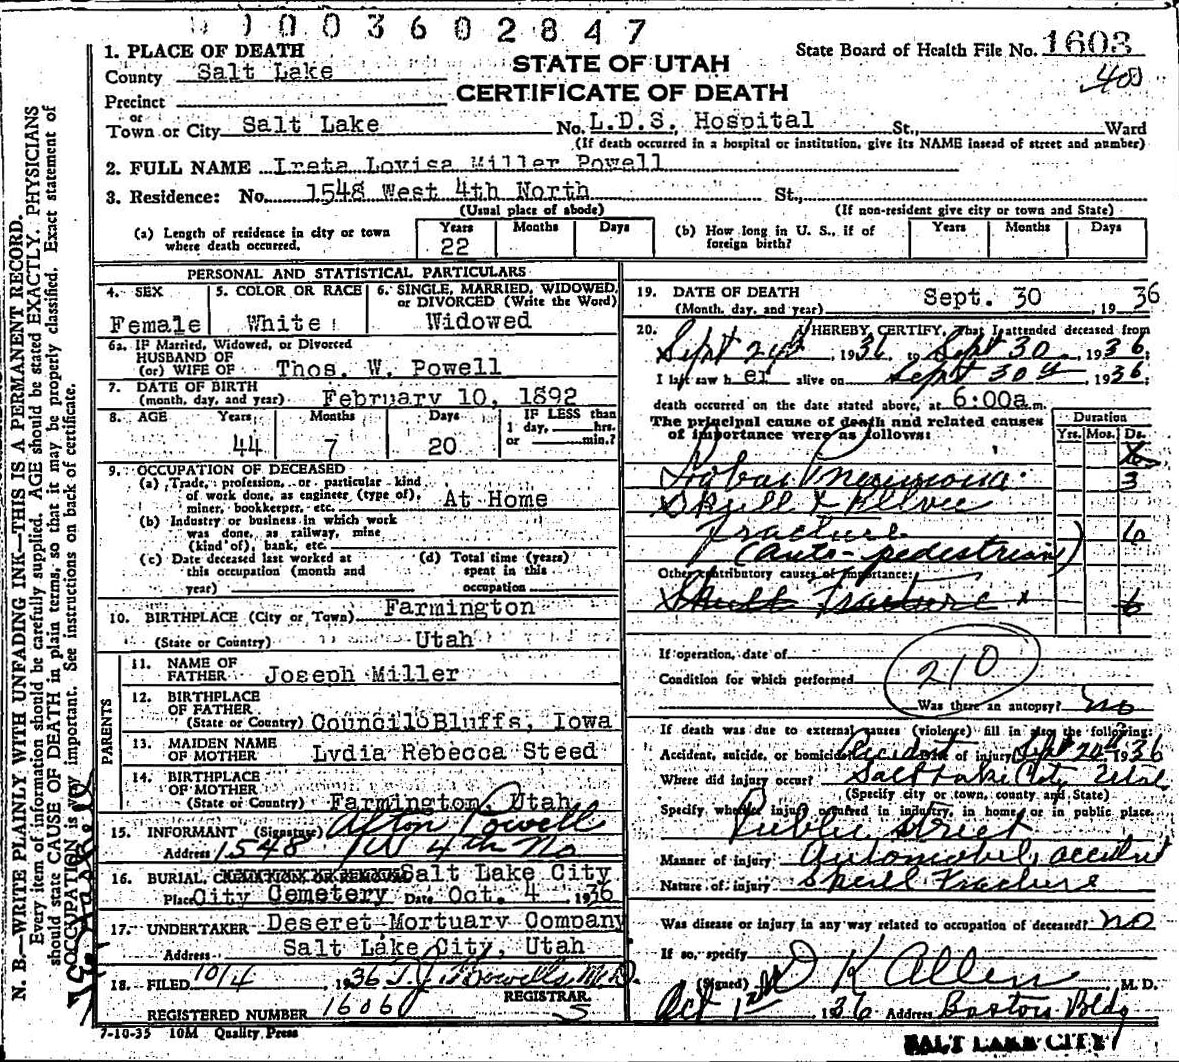 0 0 3 6 0 2 8 4 7
State Board of Health File No. 1603
400
STATE OF UTAH
CERTIFICATE OF DEATH
1. PLACE OF DEATH
County Salt Lake
Precinct
or
Town or City Salt Lake No. L.D.S. Hospital St., Ward
(If death occurred in a hospital or institution, give its NAME insead of street and number)
2. FULL NAME Ireta Lovisa Miller Powell
3. Residence: No. 1548 West 4th North St.,
(Usual place of abode) (If non-resident give city or town and State)
(a) Length of residence in city or town where death occurred. Years 22 Months Days
(b) How long in U. S., if of foreign birth? Years Months Days
PERSONAL AND STATISTICAL PARTICULARS
4. SEX Female
5. COLOR OR RACE White
6. SINGLE, MARRIED, WIDOWED, or DIVORCED (Write the Word) Widowed
6a. IF Married, Widowed, or Divorced
HUSBAND OF
(or) WIFE OF Thos. W. Powell
7. DATE OF BIRTH
(month, day, and year) February 10, 1892
8. AGE Years 44 Months 7 Days 20 IF LESS than 1 day, hrs. or min.?
9. OCCUPATION OF DECEASED
(a) Trade, profession, or particular kind of work done, as engineer (type of), miner, bookkeeper, etc. At Home
(b) Industry or business in which work was done, as railway, mine (kind of), bank, etc.
(c) Date deceased last worked at this occupation (month and year)
(d) Total time (years) spent in this occupation
10. BIRTHPLACE (City or Town) Farmington
(State or Country) Utah
PARENTS
11. NAME OF FATHER Joseph Miller
12. BIRTHPLACE OF FATHER
(State or Country) Council Bluffs, Iowa
13. MAIDEN NAME OF MOTHER Lydia Rebecca Steed
14. BIRTHPLACE OF MOTHER
(State or Country) Farmington, Utah
15. INFORMANT (Signature) Afton Powell
Address 1548 W 4th No
16. BURIAL, CREMATION OR REMOVAL Salt Lake City
Place City Cemetery Date Oct. 4, 1936
17. UNDERTAKER Deseret Mortuary Company
Address Salt Lake City, Utah
18. FILED 10/4, 1936 M.D.
REGISTRAR.
REGISTERED NUMBER 1606
7-10-35 10M Quality Press
19. DATE OF DEATH
(Month, day, and year) Sept. 30, 1936
20. I HEREBY CERTIFY, That I attended deceased from
Sept 24, 1936, to Sept 30, 1936,
I last saw her alive on Sept 30th, 1936,
death occurred on the date stated above, at 6:00a.m.
The principal cause of death and related causes of importance were as follows:
Duration
Yrs. Mos. Ds.
Lobar Pneumonia 3
Skull & Pelvic
Fracture 6
(auto-pedestrian)
Other contributory causes of importance:
Skull Fracture 6
If operation, date of
Condition for which performed
210
Was there an autopsy? no
If death was due to external causes (violence) fill in also the following:
Accident, suicide, or homicide? Accident Date of injury Sept 24th 1936
Where did injury occur? Salt Lake City Utah
(Specify city or town, county and State)
Specify whether injury occurred in industry, in home, or in public place.
Public Street
Manner of injury Automobile accident
Nature of injury Skull Fracture
Was disease or injury in any way related to occupation of deceased? no
If so, specify
(Signed) D K Allen M. D.
Oct 1st, 1936 Address Boston Bldg
SALT LAKE CITY
N. B.—WRITE PLAINLY WITH UNFADING INK—THIS IS A PERMANENT RECORD.
Every item of information should be carefully supplied. AGE should be stated EXACTLY. PHYSICIANS
should state CAUSE OF DEATH in plain terms, so that it may be properly classified. Exact statement of
OCCUPATION is very important. See instructions on back of certificate.